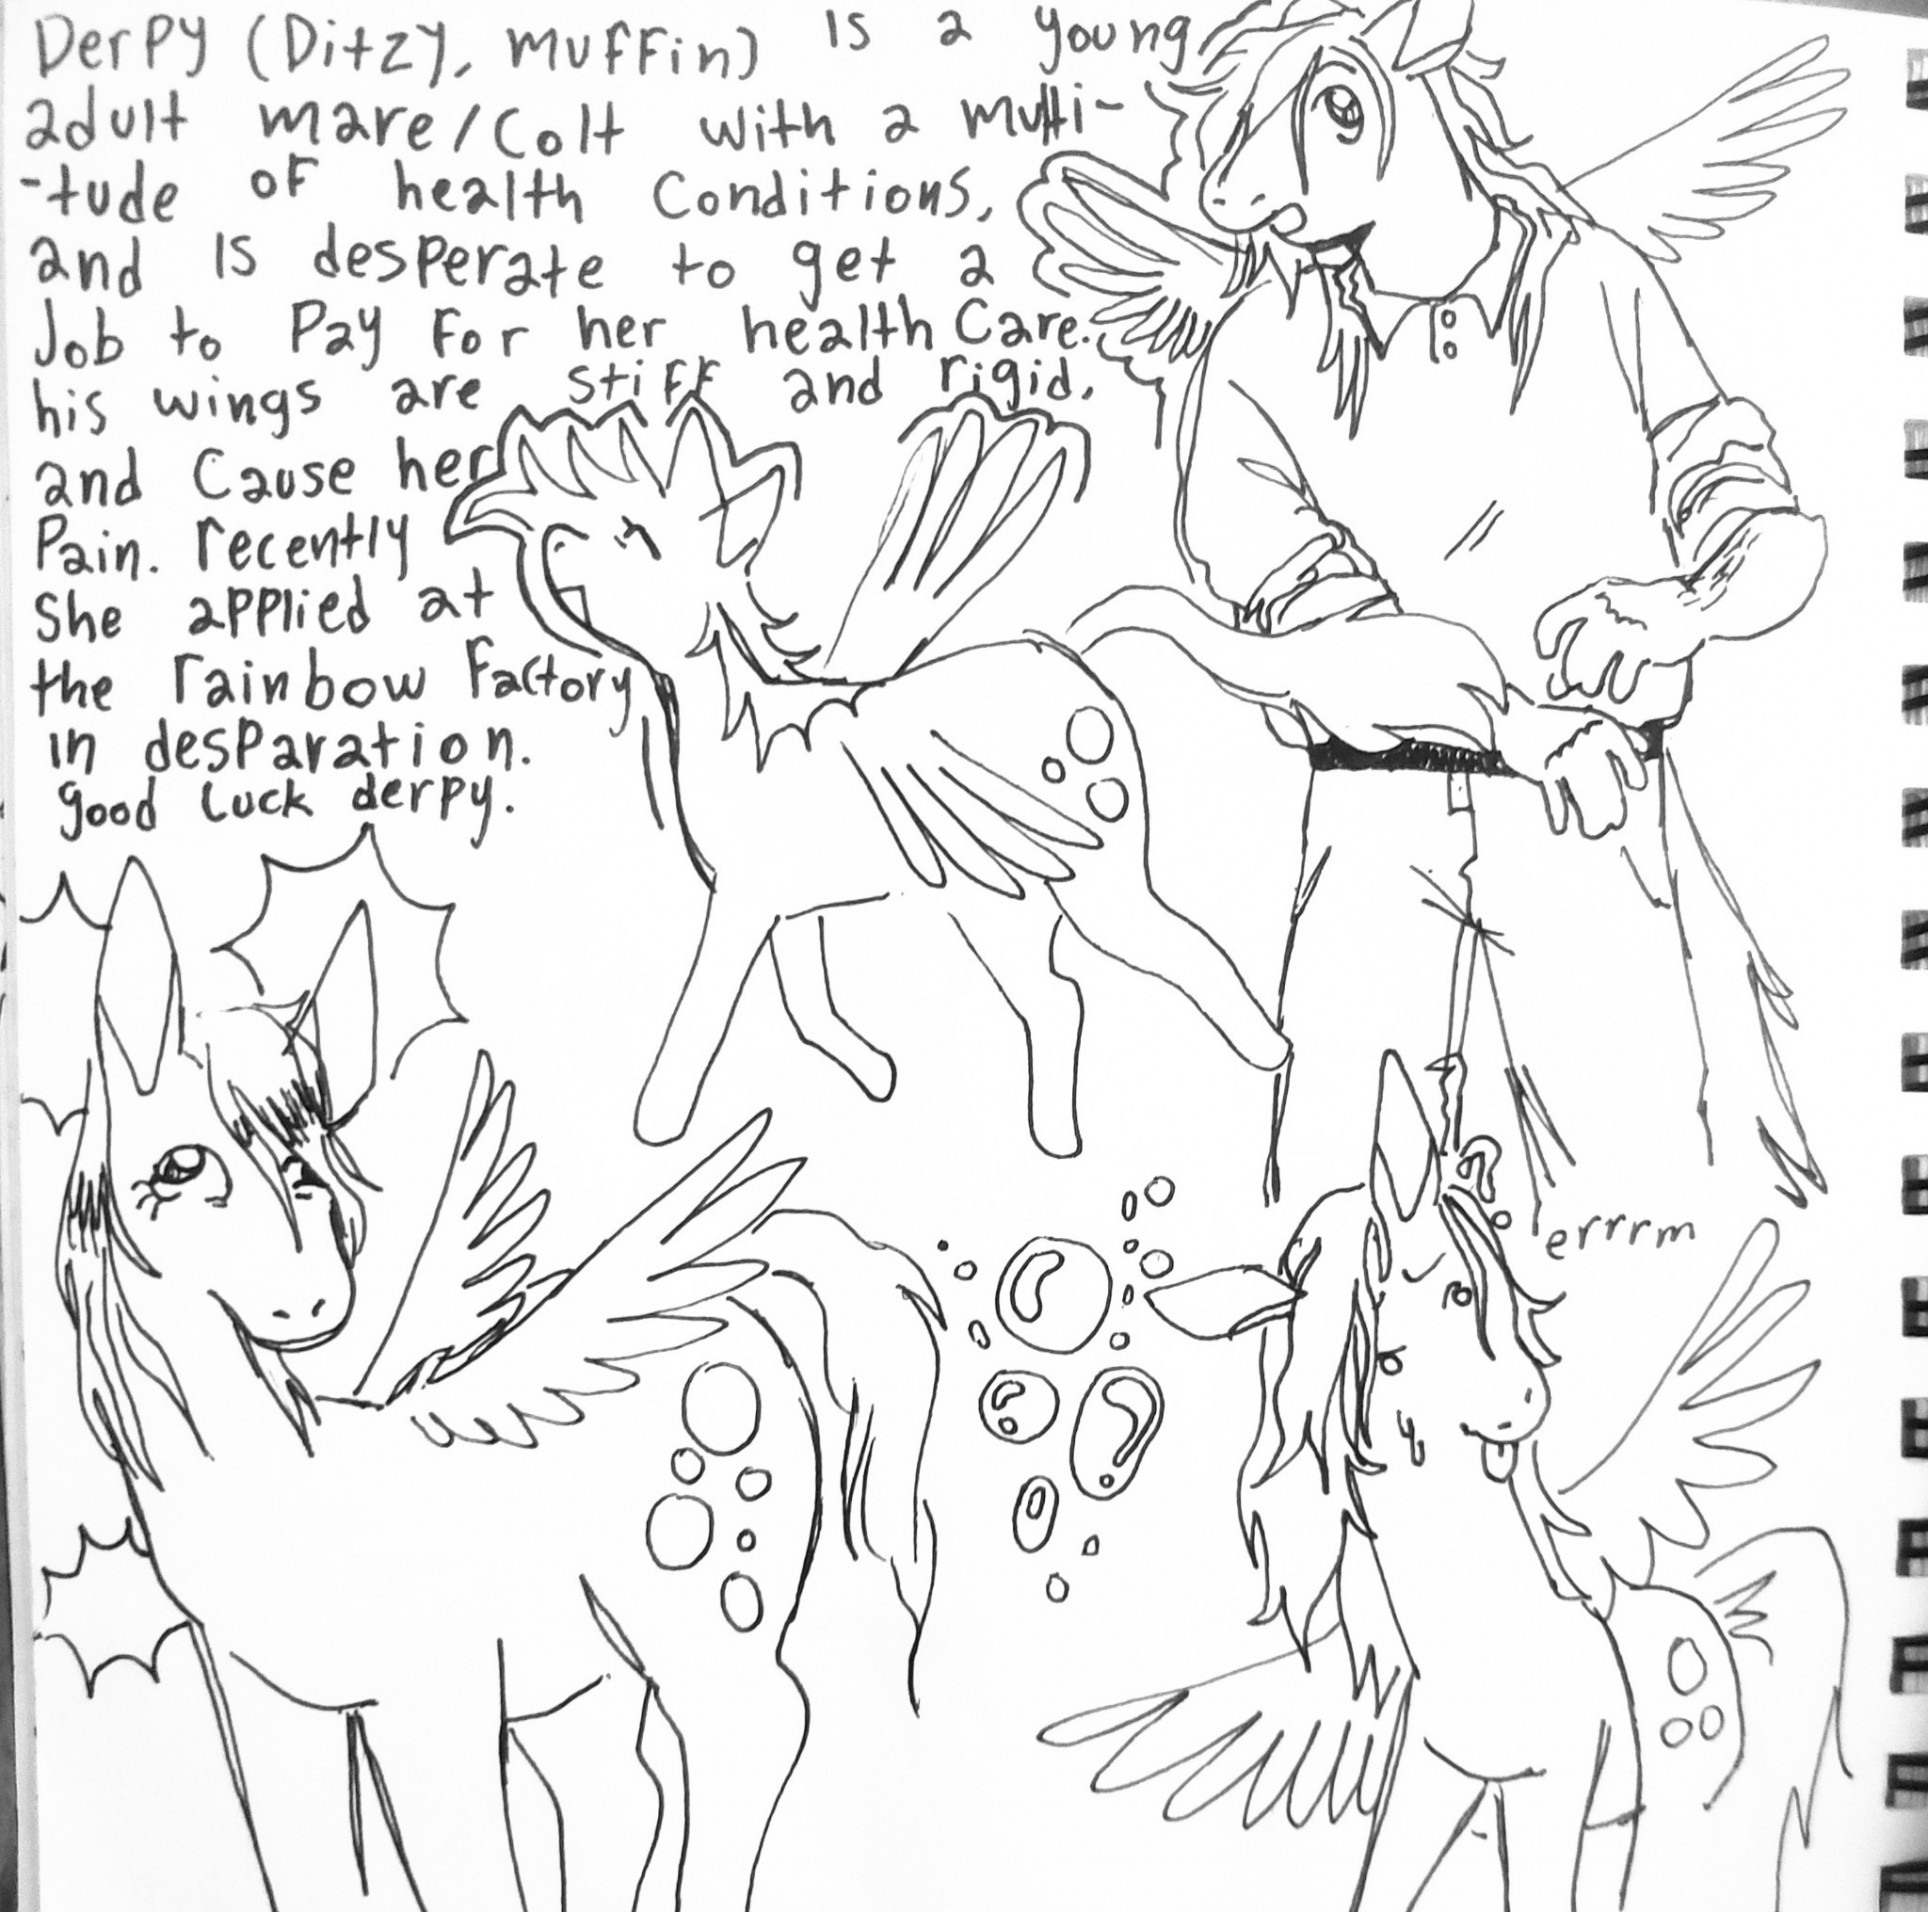 Derpy (Ditzy, muffin) is a young
adult mare/Colt with a multi-
-tude of health Conditions,
and is desperate to get a
Job to Pay For her health Care.
his wings are stiff and rigid,
and Cause her
Pain. recently
She applied at
the rainbow Factory
in desparation.
good luck derpy.
errrm